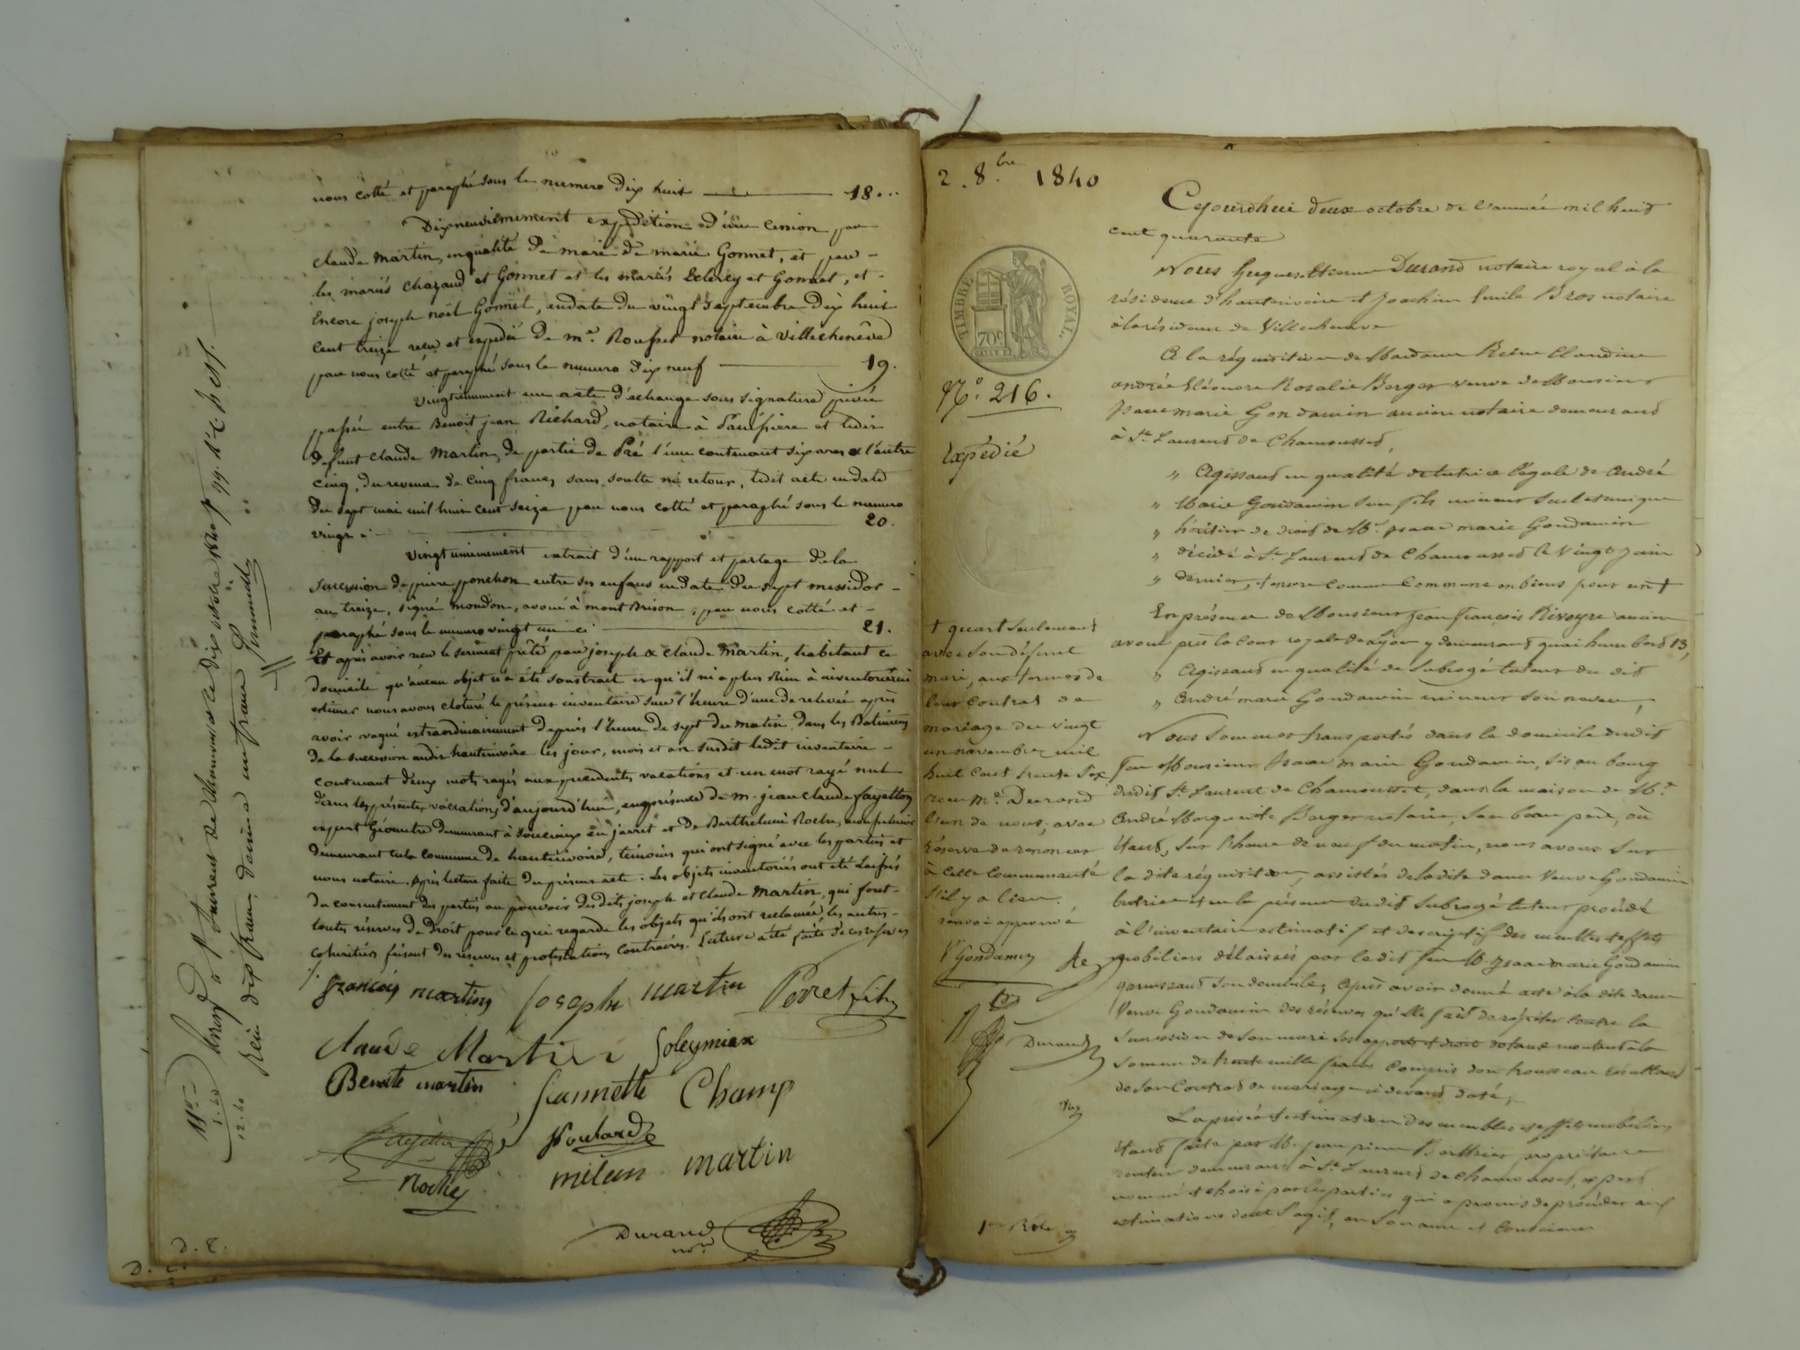 nous cotté et paraphé sous le numero dix huit 18.
Dixneuviemement expédition d'une cession par
claude Martin, enqualité de mari de marie Gonnet, et par
les mariés chazaud et Gonnet et les mariés Leclercy et Gonnet, et
Encore joseph noël Gonnet, endate du vingt septembre dix huit
cent treize recu et expedié de me. Rousset notaire à villecheneve
par nous cotté et paraphé sous le numero dix neuf 19.
Vingtiemement un acte d'echange sous signature privée
passée entre Benoit jean Richard, notaire à et ledit
defunt claude Martin, de partie de Pré l'une contenant six ares et l'autre
cinq, du revenu de cinq francs sans soulte ni retour, ledit acte endate
du sept mai mil huit cent seize par nous cotté et paraphé sous le numero
vingt ci 20.
vingtuniemement extrait d'un rapport et partage de la
succession de pierre ponchon entre ses enfans endate du sept messidor
an treize, signé mondon, avoué à montbrison, par nous cotté et
paraphé sous le numero vingt un ci 21.
Et après avoir recu le serment prêté par joseph & claude Martin, habitant ce
domicile qu'aucun objet n'a été soustrait et qu'il ni a plus rien à inventorier ni
estimer nous avons cloturé le présent inventaire sur l'heure d'une de relevée après
avoir vaqué extraordinairement depuis l'heure de sept du matin dans les Batimens
de la succession audit hauterivoire les jour, mois et an susdit ledit inventaire
contenant deux mots rayés aux precedentes vacations et un mot rayé nul
dans les présentes vacations d'aujourd'hui, en présence de m. jean claude fayolle
expert Géometre demeurant à Souzieux en jarret et de Barthelemi Roche,
demeurant en la commune de hauterivoire, témoins qui ont signé avec les parties et
nous notaire. Après lecture faite du présent acte. Les objets inventoriés ont été laissés
du consentement des parties au pouvoir desdits joseph et claude Martin, qui font
toutes réserves de Droit pour ce qui regarde les objets qu'ils ont reclamés, les autres
cohéritiers faisant des réserves et protestations contraires. Lecture a été faite de ces réserves
françois martin joseph martin Perret
claude Martin Soleymieux
Benoite martin Jeannette Champ
Poulard
Roche milan martin
Durand
nre
D. E.
D. E.
Enregt à St Laurent de Chamousset le dix octobre 1840 fo 99
Recu dix francs, décime un franc
11
1.10
12.10
2. 8bre 1840
TIMBRE ROYAL
70c
No. 216.
Expédié
Cejourdhui deux octobre de l'année mil huit
cent quarante
Nous hugues Etienne Durand notaire royal à la
résidence d'hauterivoire et Joachim Emile Bros notaire
à la résidence de Villecheneve
A la réquisition de Madame Reine Claudine
andrée Eléonore Rosalie Berger veuve de Monsieur
Isaac marie Gondamin ancien notaire demeurant
à St. Laurent de Chamousset,
" Agissant en qualité de tutrice légale de André
" Marie Gondamin son fils mineur seul et unique
" héritier de droit de Mr. Isaac marie Gondamin
" décédé à St. Laurent de Chamousset le vingt juin
" dernier, & encore comme commune en biens pour un +
En présence de Monsieur Jean françois Rivoyre ancien
avoué près la cour royale de Lyon y demeurant quai humbert 13,
" Agissant en qualité de subrogé tuteur du dit
" André marie Gondamin mineur son neveu,
Nous sommes transportés dans le domicile dudit
feu Monsieur Isaac marie Gondamin, sis au bourg
dudit St. Laurent de Chamousset, dans la maison de Mr.
André Marguerite Berger notaire, son beau père, où
étant, sur l'heure de neuf du matin, nous avons sur
la dite réquisition, assistés de la dite dame Veuve Gondamin
tutrice et en la présence dudit subrogé tuteur procédé
à l'inventaire estimatif et descriptif des meubles & effets
mobiliers délaissés par le dit feu Mr. Isaac marie Gondamin
garnissant son domicile, après avoir donné acte à la dite dame
Veuve Gondamin des réserves qu'elle fait de répéter contre la
succession de son mari ses apports et droits dotaux montant à la
somme de trente mille francs compris son trousseau résultant
de son Contrat de mariage ci devant daté,
La prisée & estimation des meubles & effets mobiliers
étant faite par Mr. Jean pierre Berthier propriétaire
rentier demeurant à St. Laurent de Chamousset, expert
nommé & choisi par les parties qui a promis de procéder aux
estimations dont s'agit, en son ame et conscience
+ quart seulement
avec son défunt
mari, aux termes de
leur contrat de
mariage du vingt
un novembre mil
huit cent trente six
recu Me. Durand
l'un de nous, avec
réserve de renoncer
à cette Communauté
s'il y a lieu.
renvoi approuvé
Ve Gondamin
Durand
1er Rôle